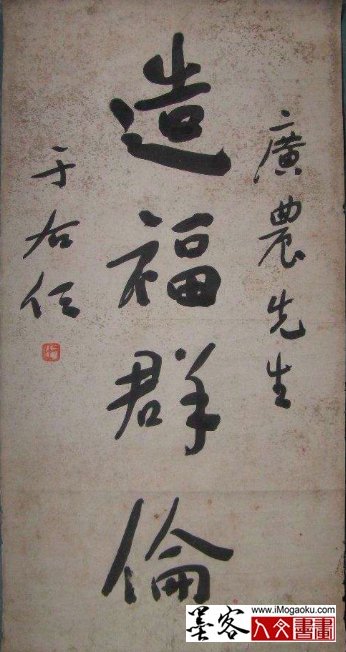 廣農先生
造福群倫
于右任
墨客
www.iMogaoku.com
人文書畫